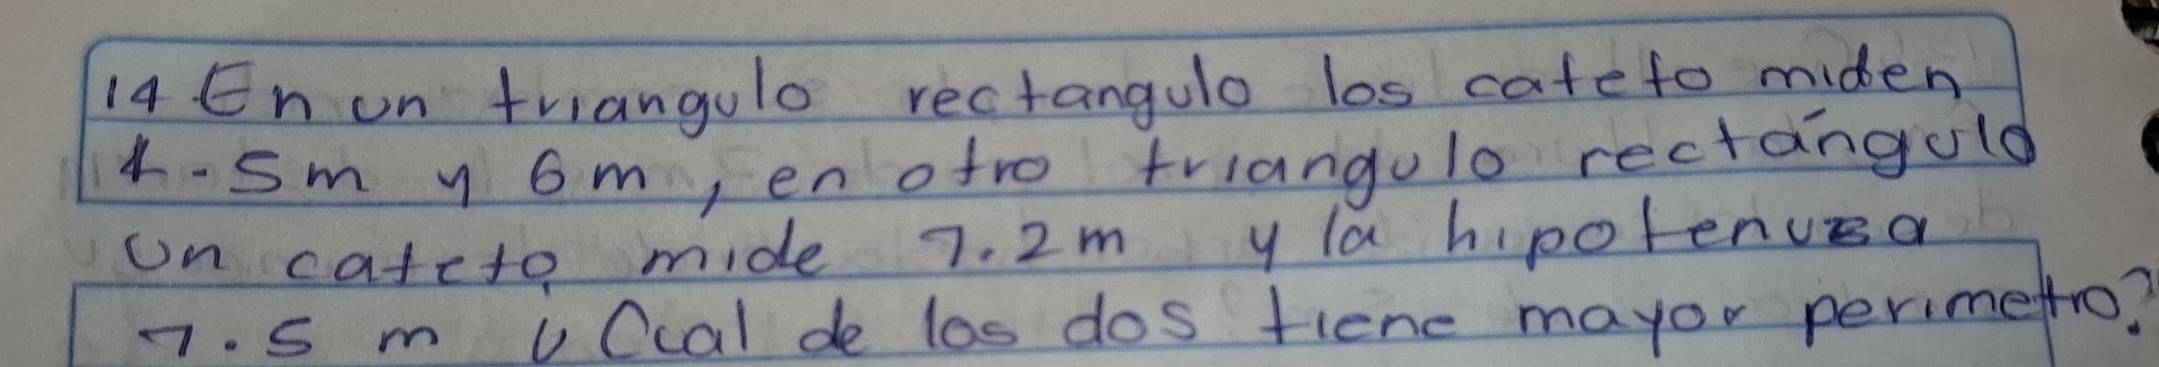 14. En un triangulo rectangulo los cateto miden
4.5m y 6m, en otro triangulo rectángulo
un cateto mide 7.2m y la hipotenusa
7.5 m ¿Cual de los dos tiene mayor perimetro?